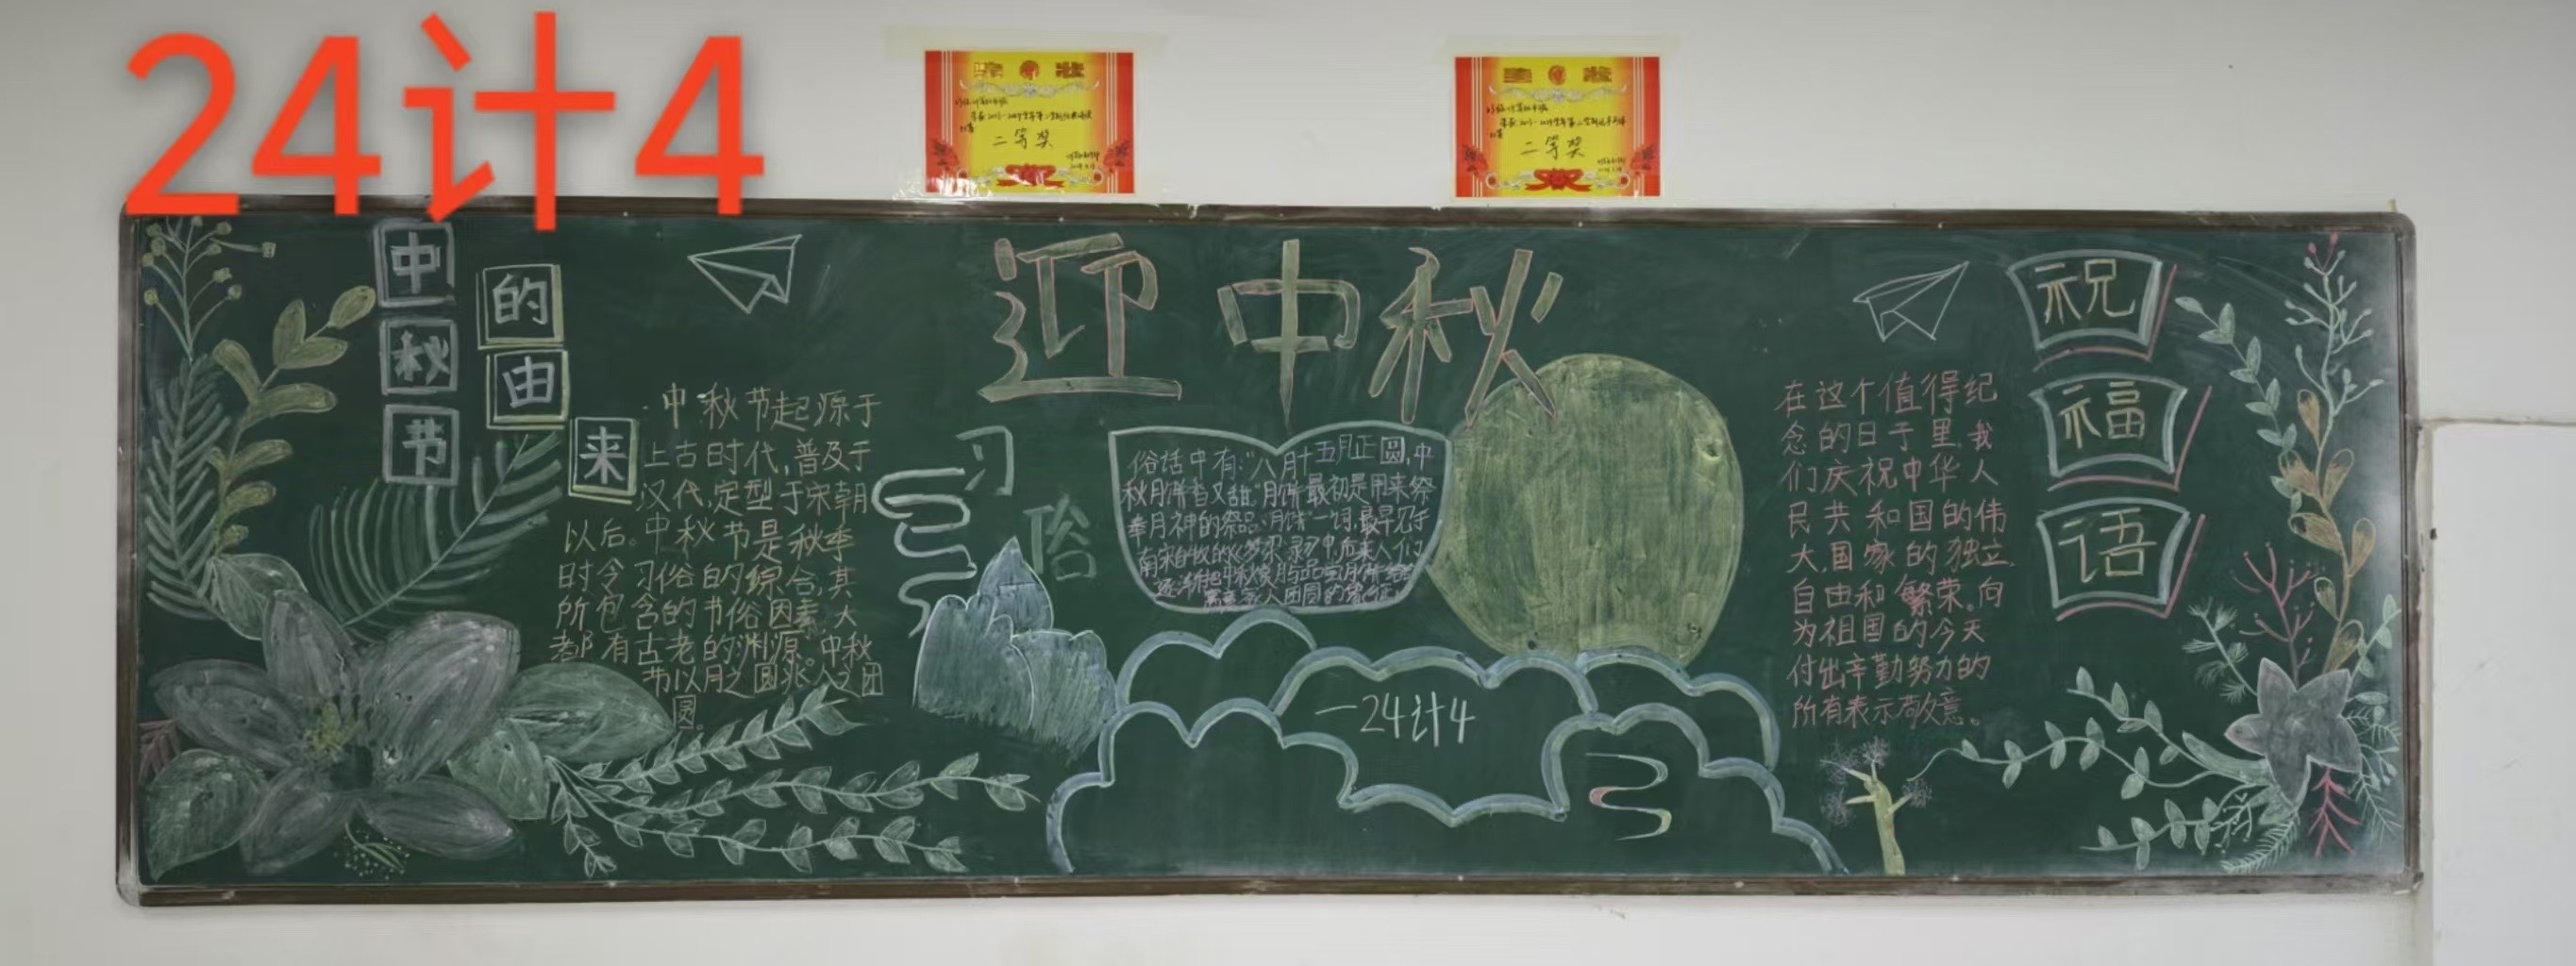 24计4
奖状
二等奖
奖状
二等奖
中秋节
的由来
中秋节起源于
上古时代,普及于
汉代,定型于宋朝
以后。中秋节是秋季
时令习俗的综合,其
所包含的节俗因素,大
都有古老的渊源。中秋
节以月之圆兆人之团
圆。
迎中秋
习俗
俗话中有:“八月十五月正圆,中
秋月饼香又甜。”月饼最初是用来祭
奉月神的祭品,“月饼”一词,最早见于
南宋的《梦梁录》中,后来人们
逐渐把中秋赏月与品尝月饼
寓意家人团圆的象征
一24计4
在这个值得纪
念的日子里,我
们庆祝中华人
民共和国的伟
大,国家的独立,
自由和繁荣。向
为祖国的今天
付出辛勤努力的
所有表示敬意。
祝福语